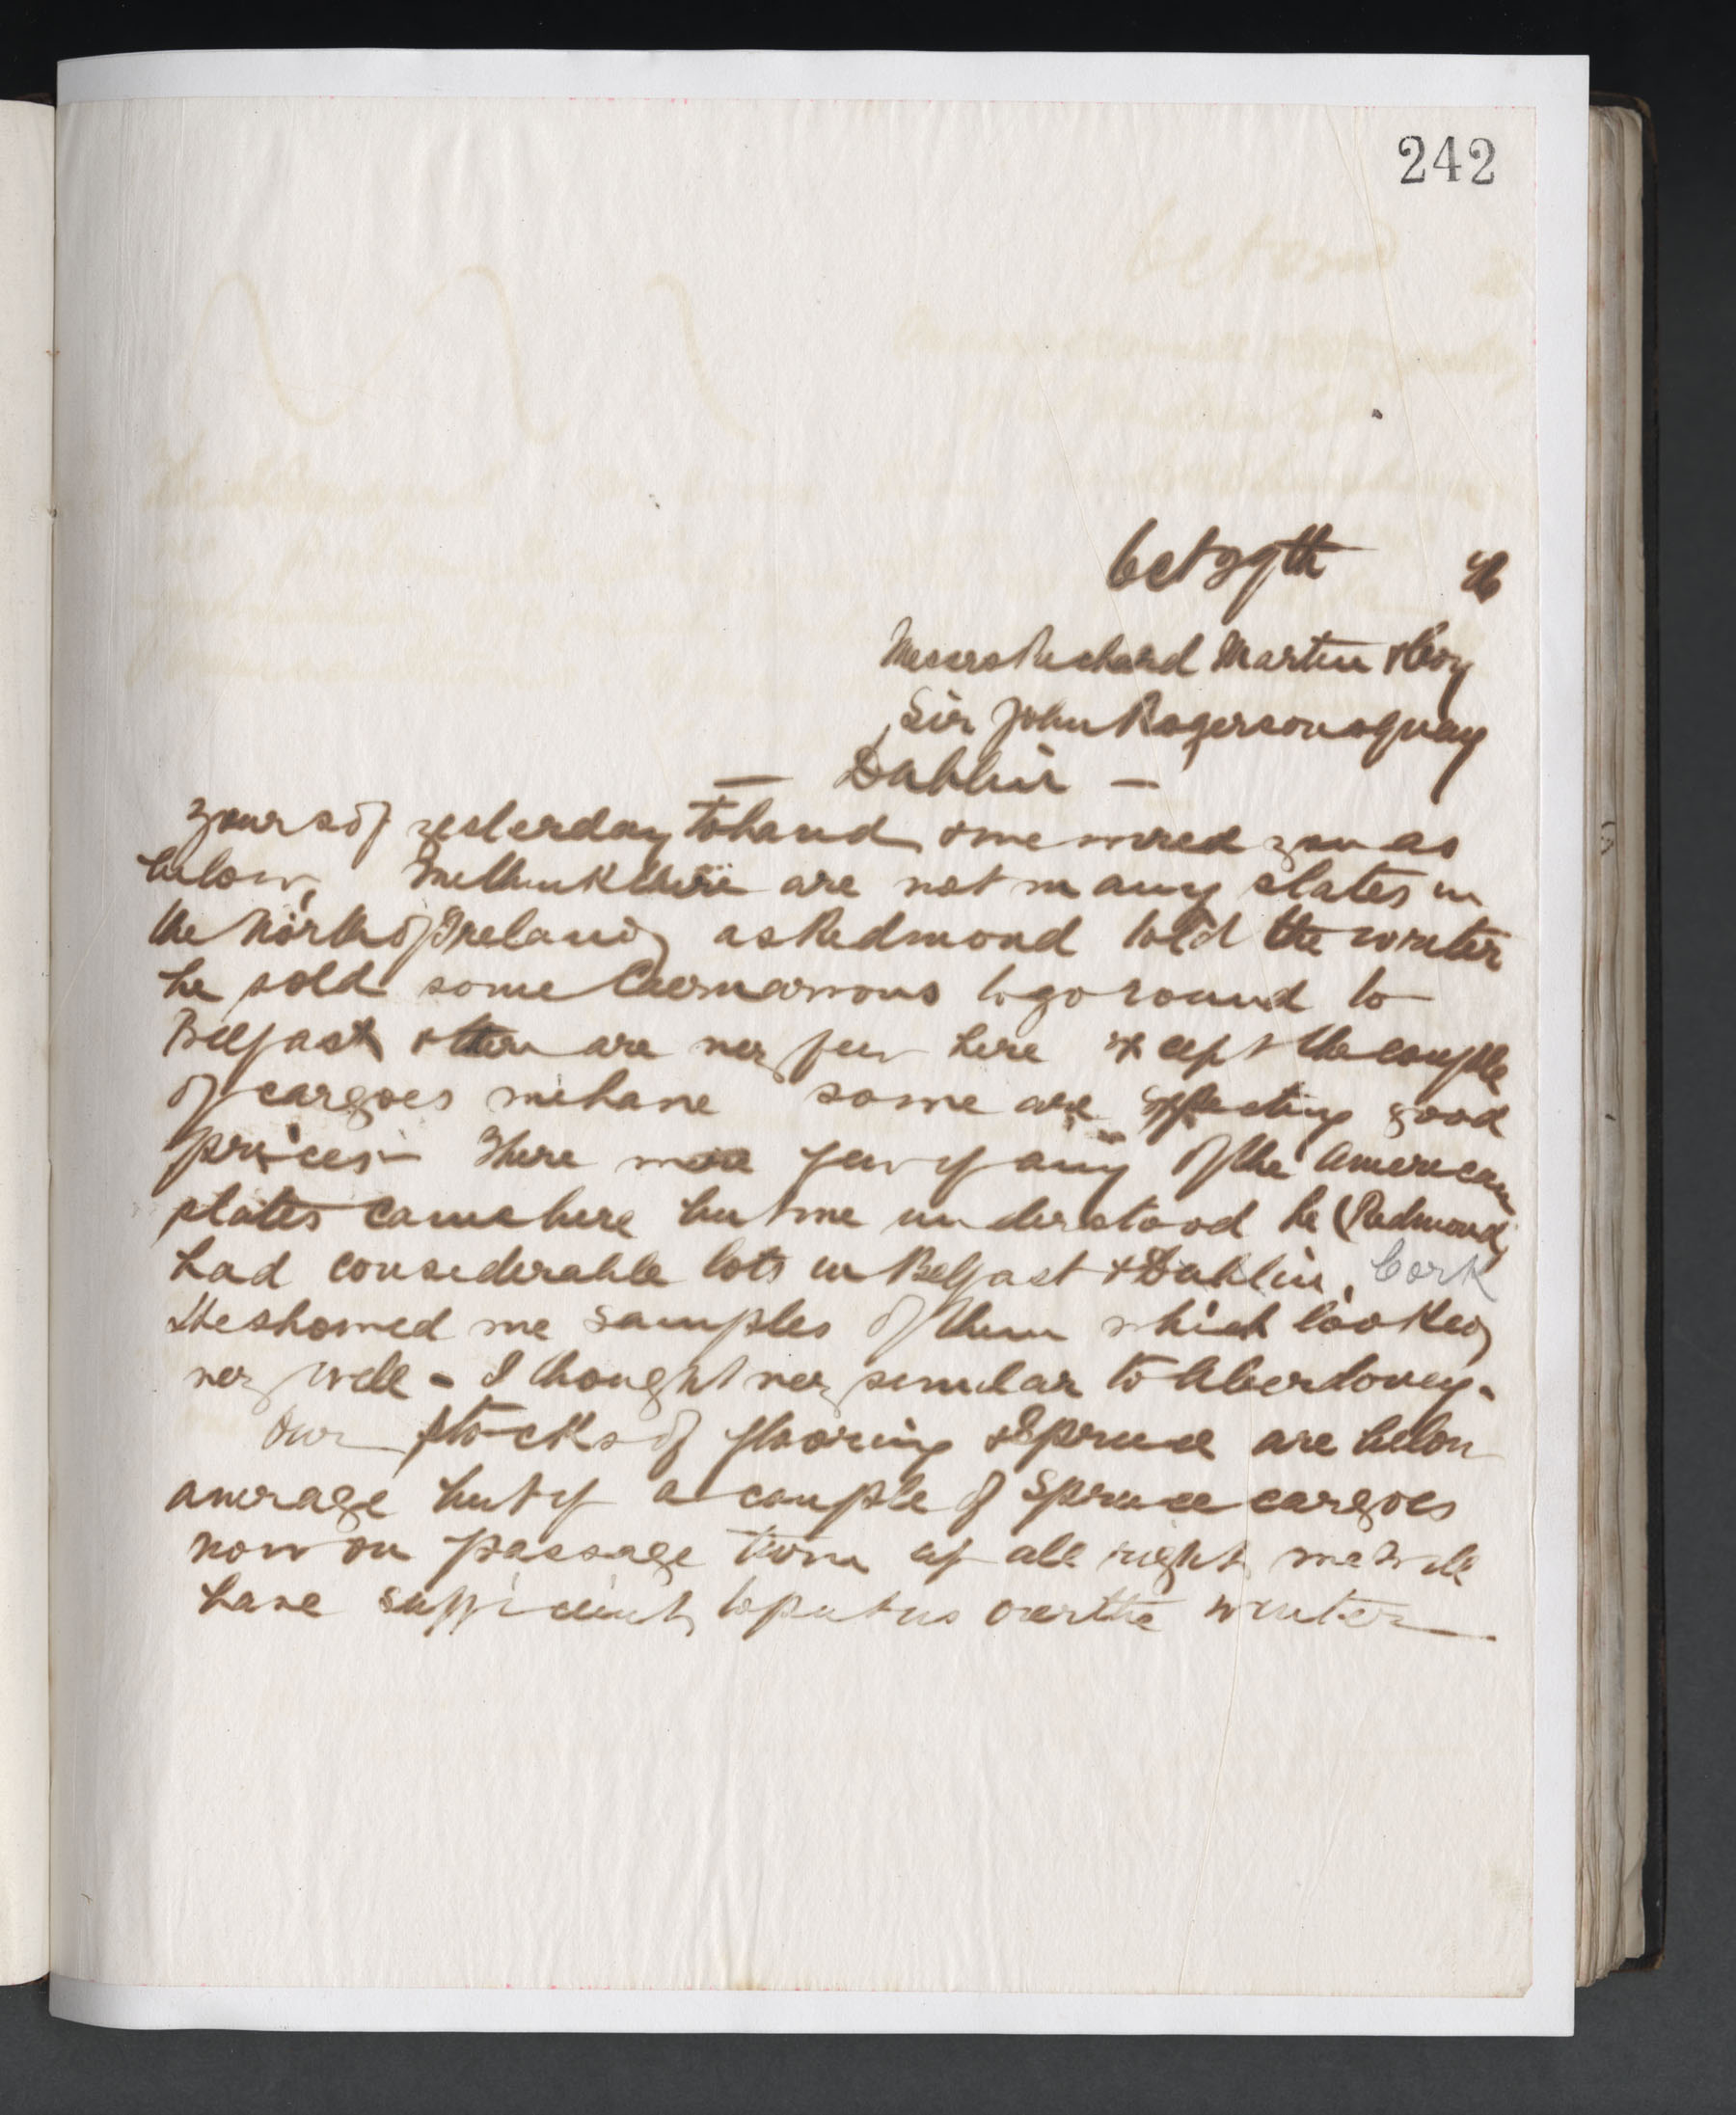 242
Oct 29th 96
Messrs Richard Martin & Coy
Sir John Rogersons quay
— Dublin —
Yours of yesterday to hand & we wired you as
below, We think there are not many slates in
the North of Ireland as Redmond told the writer
he sold some Caernarvons to go round to
Belfast & there are very few here except the couple
of cargoes we have some are expecting good
prices - There were few if any of the American
slates came here but we understood he (Redmond)
had considerable lots in Belfast & Dublin, Cork
He showed me samples of them which looked
very well - I thought very similar to Aberdovey -
Our stocks of flooring & Spruce are below
average but if a couple of Spruce cargoes
now on passage turn up all right we will
have sufficient to put us over the winter